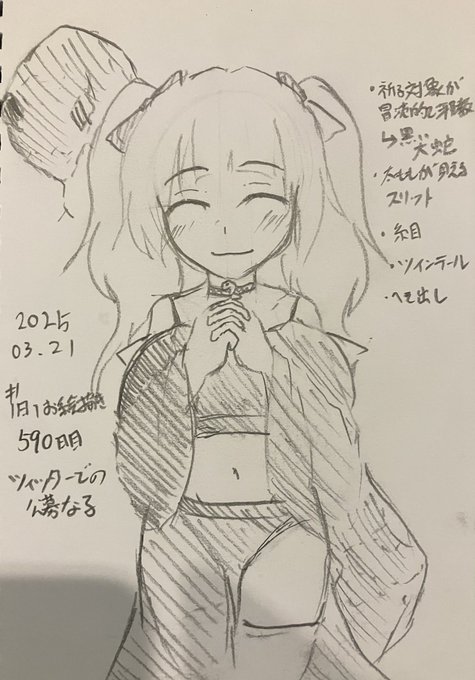 ・祈る対象が
冒涜的な邪教
↳黒い大蛇
・太ももが見える
スリット
・糸目
・ツインテール
・へそ出し
2025
03.21
#1日1お絵描き
590日目
ツイッターでの
公募なる